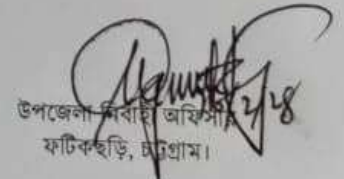 উপজেলা নির্বাহী অফিসার
ফটিকছড়ি, চট্টগ্রাম।